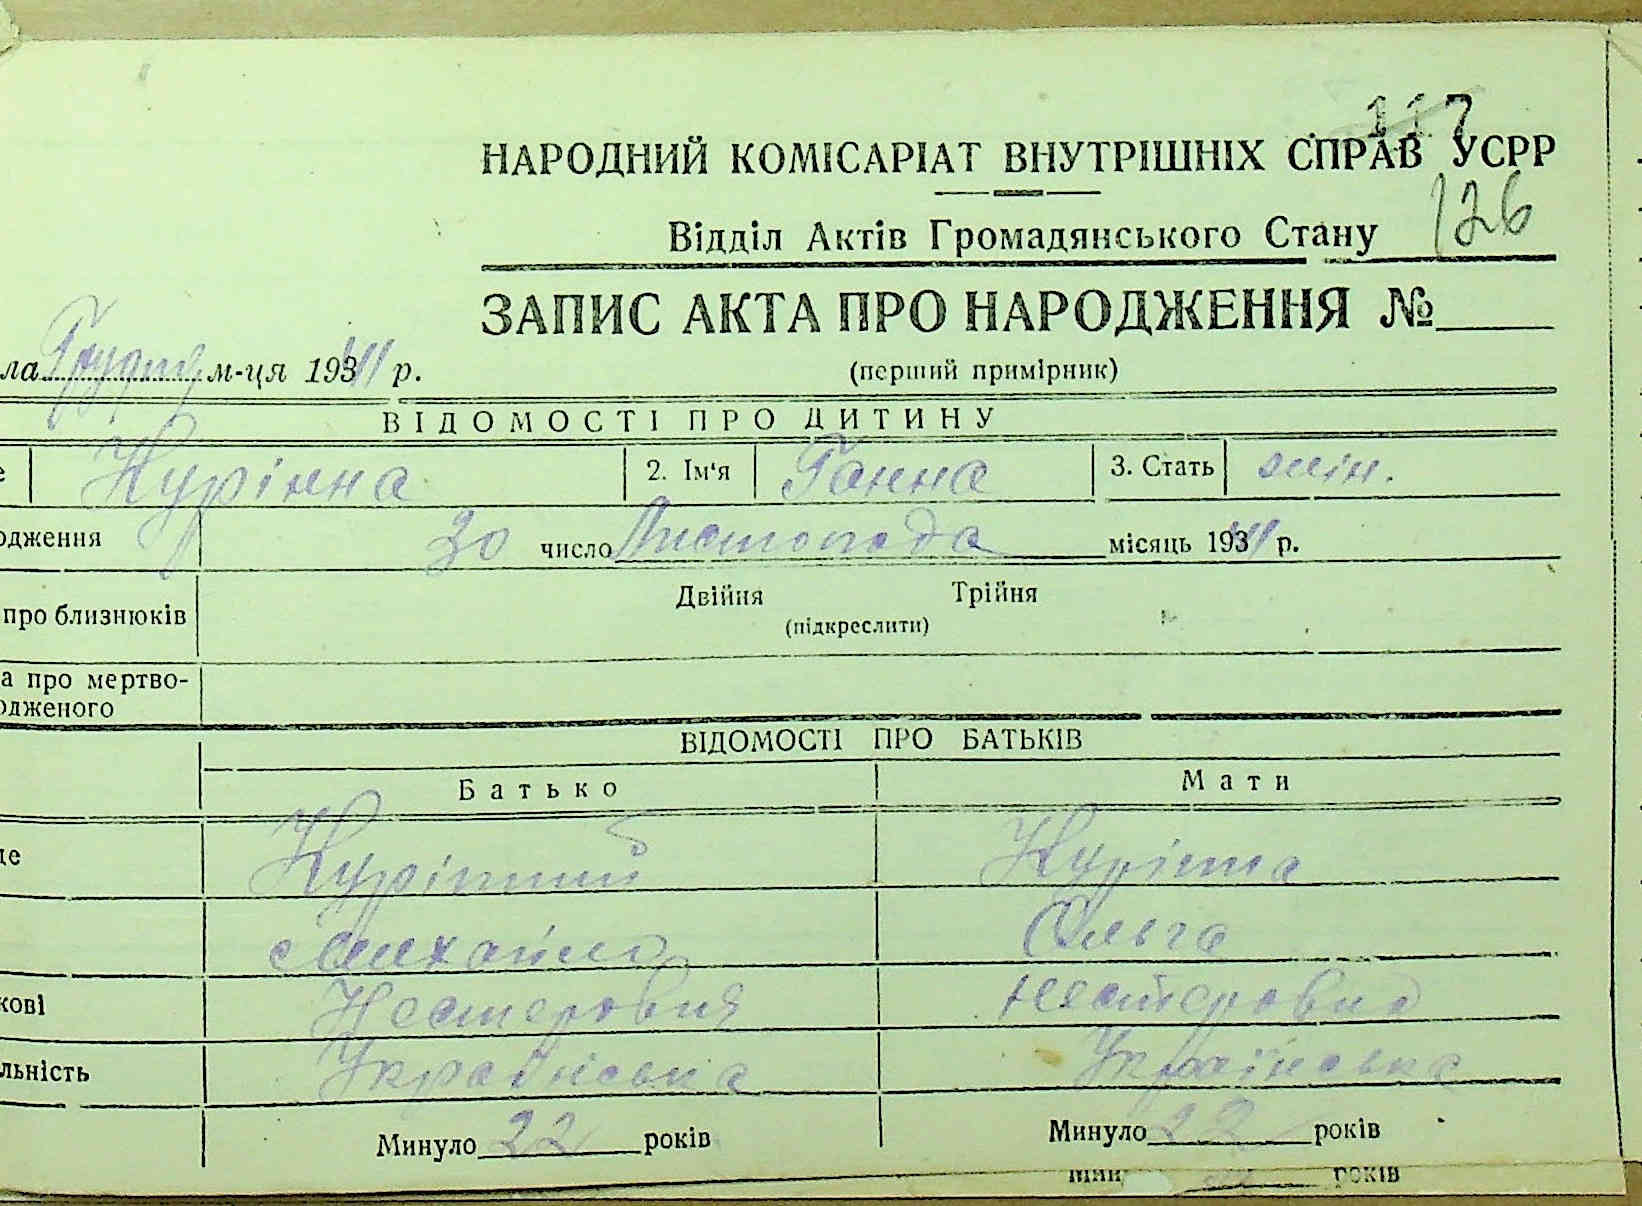 117
НАРОДНИЙ КОМІСАРІАТ ВНУТРІШНІХ СПРАВ УСРР
126
Відділ Актів Громадянського Стану
ЗАПИС АКТА ПРО НАРОДЖЕННЯ №
ла Грудня м-ця 19341 р.
(перший примірник)
ВІДОМОСТІ ПРО ДИТИНУ
е Курінна 2. Ім'я Ганна 3. Стать жін.
одження 30 число Листопада місяць 19341 р.
про близнюків Двійня Трійня
(підкреслити)
а про мертво-
одженого
ВІДОМОСТІ ПРО БАТЬКІВ
Батько Мати
це Курінний Курінна
Михайло Ольга
кові Нестерович Нестеровна
льність Українська Українська
Минуло 22 років Минуло 22 років
років